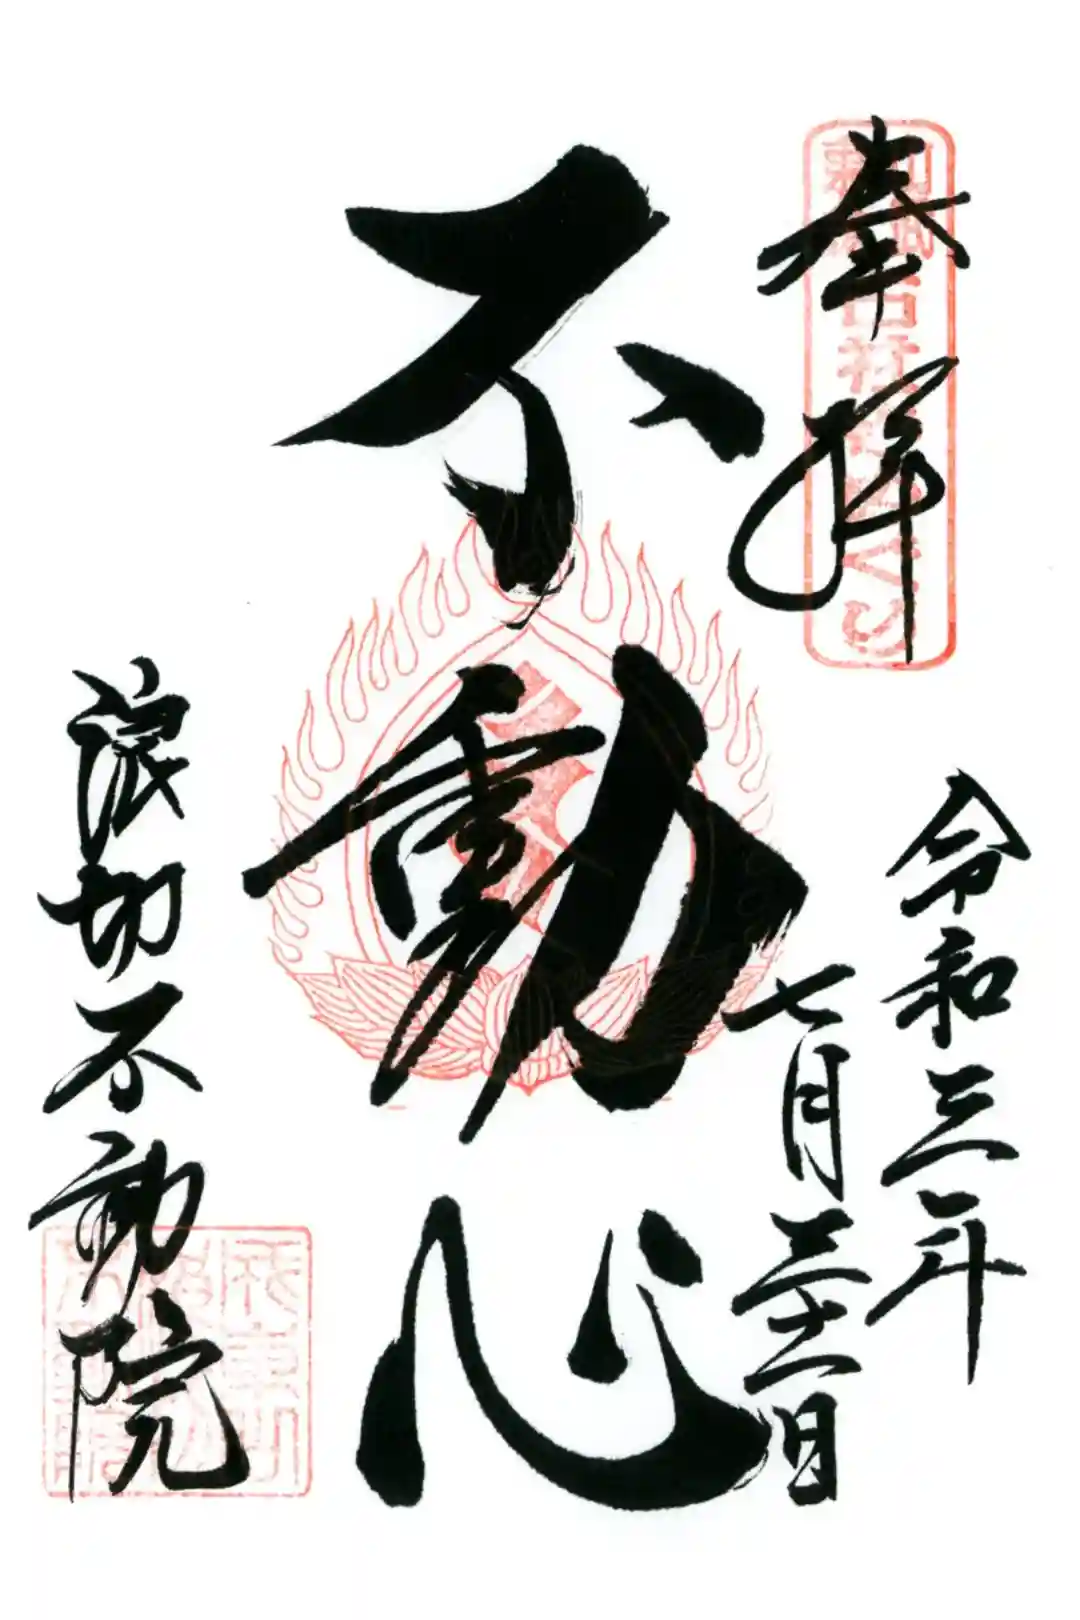 奉拝
令和三年
七月三十一日
不動心
浪切不動院